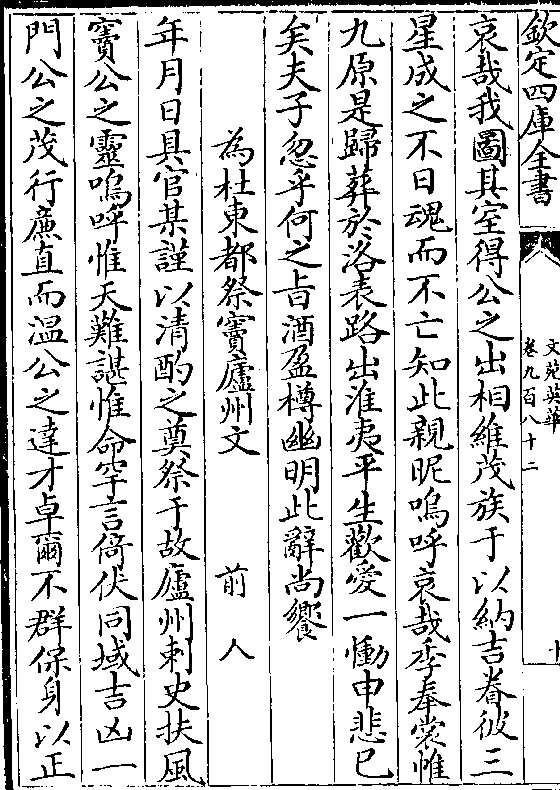 欽定四庫全書
文苑英華
卷九百八十二
哀哉我圖其室得公之出相維茂族于以納吉眷彼三
星成之不日魂而不亡知此親昵嗚呼哀哉季奉裳帷
九原是歸葬於洛表路出淮夷平生歡愛一慟申悲已
矣夫子忽乎何之旨酒盈樽幽明此辭尚饗
為杜東都祭竇廬州文 前人
年月日具官某謹以清酌之奠祭于故廬州刺史扶風
竇公之靈嗚呼惟天難諶惟命罕言倚伏同域吉凶一
門公之茂行廉直而溫公之達才卓爾不群保身以正